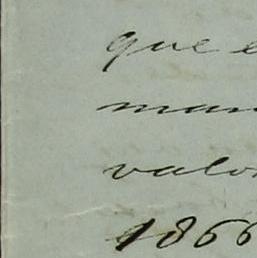 que e
man
valo
1866